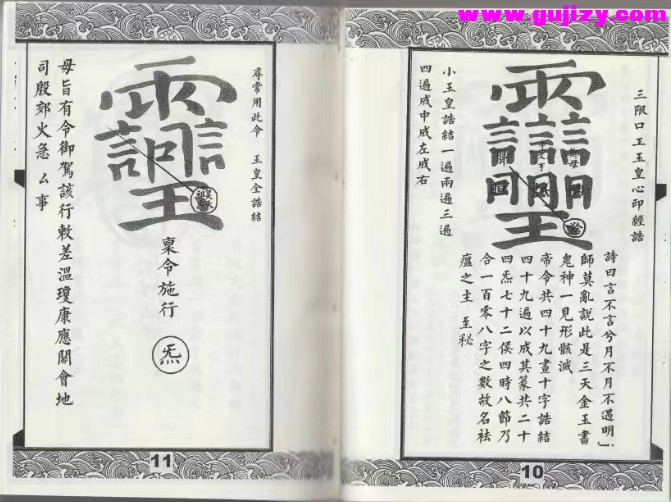 www.gujizy.com
三限口工玉皇心印經誥
詩曰言不言兮月不月不遇明」
師莫亂說此是三天金玉書
鬼神一見形骸滅
帝令共四十九畫十字誥結
四十九遍以成其篆共二十
四炁七十二侯四時八節乃
合一百零八字之數故名祛
瘟之主 至秘
小玉皇誥結一遍兩遍三遍
四遍成中成左成右
10
尋常用此令 玉皇全誥結
稟令施行
炁
毋旨有令御駕該行敕差溫瓊康應關會地
司殷郊火急 厶事
11